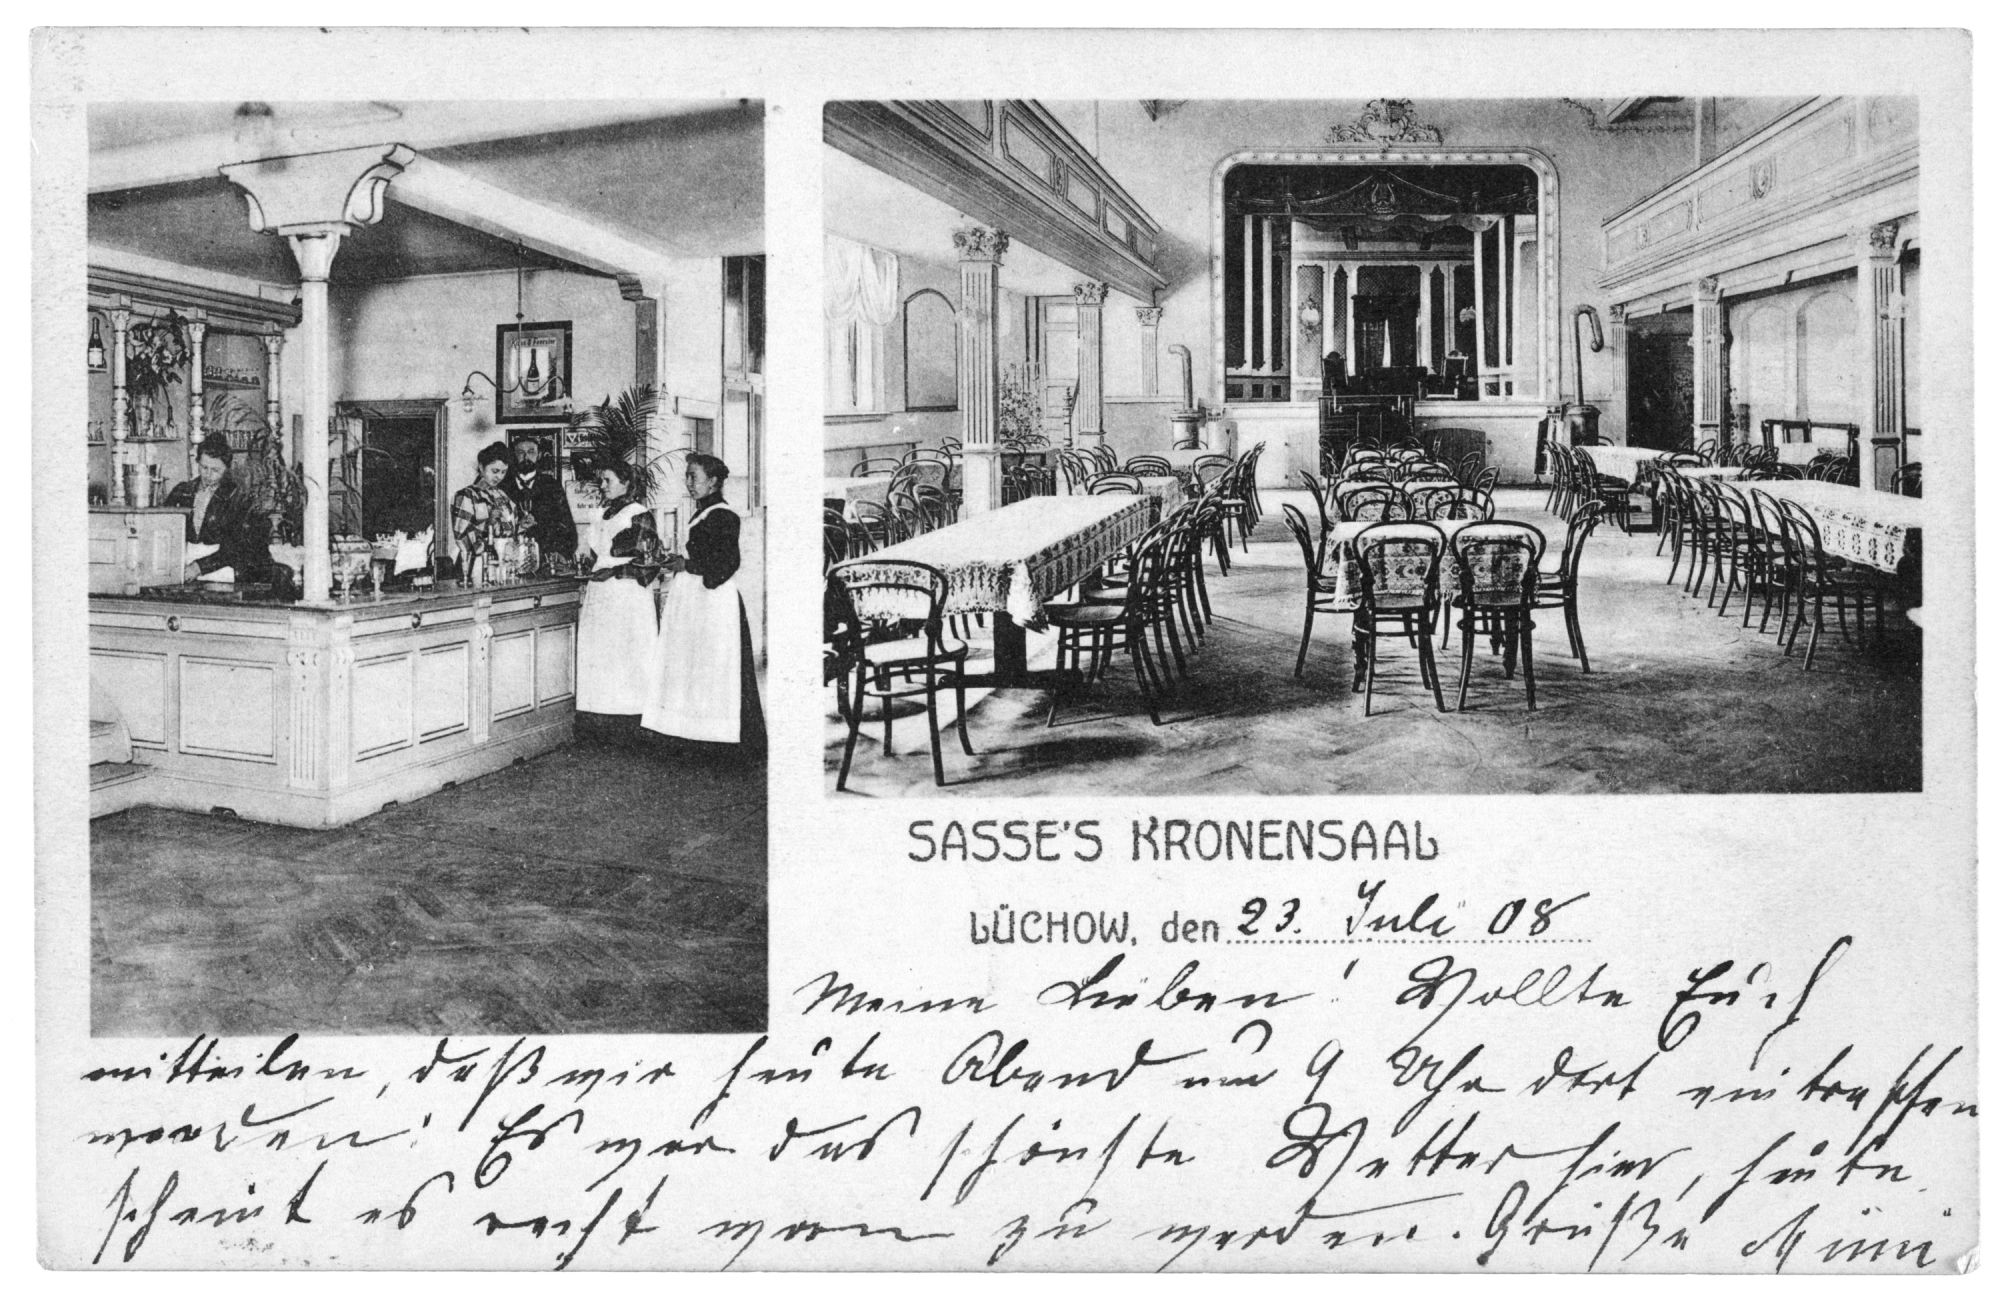 SASSE'S KRONENSAAL
LÜCHOW, den 23. Juli 08
Meine Lieben! Wollte Euch
mitteilen, daß wir heute Abend um 9 Uhr dort eintreffen
werden. Es war das schönste Wetter hier, heute
scheint es recht warm zu werden. Grüße